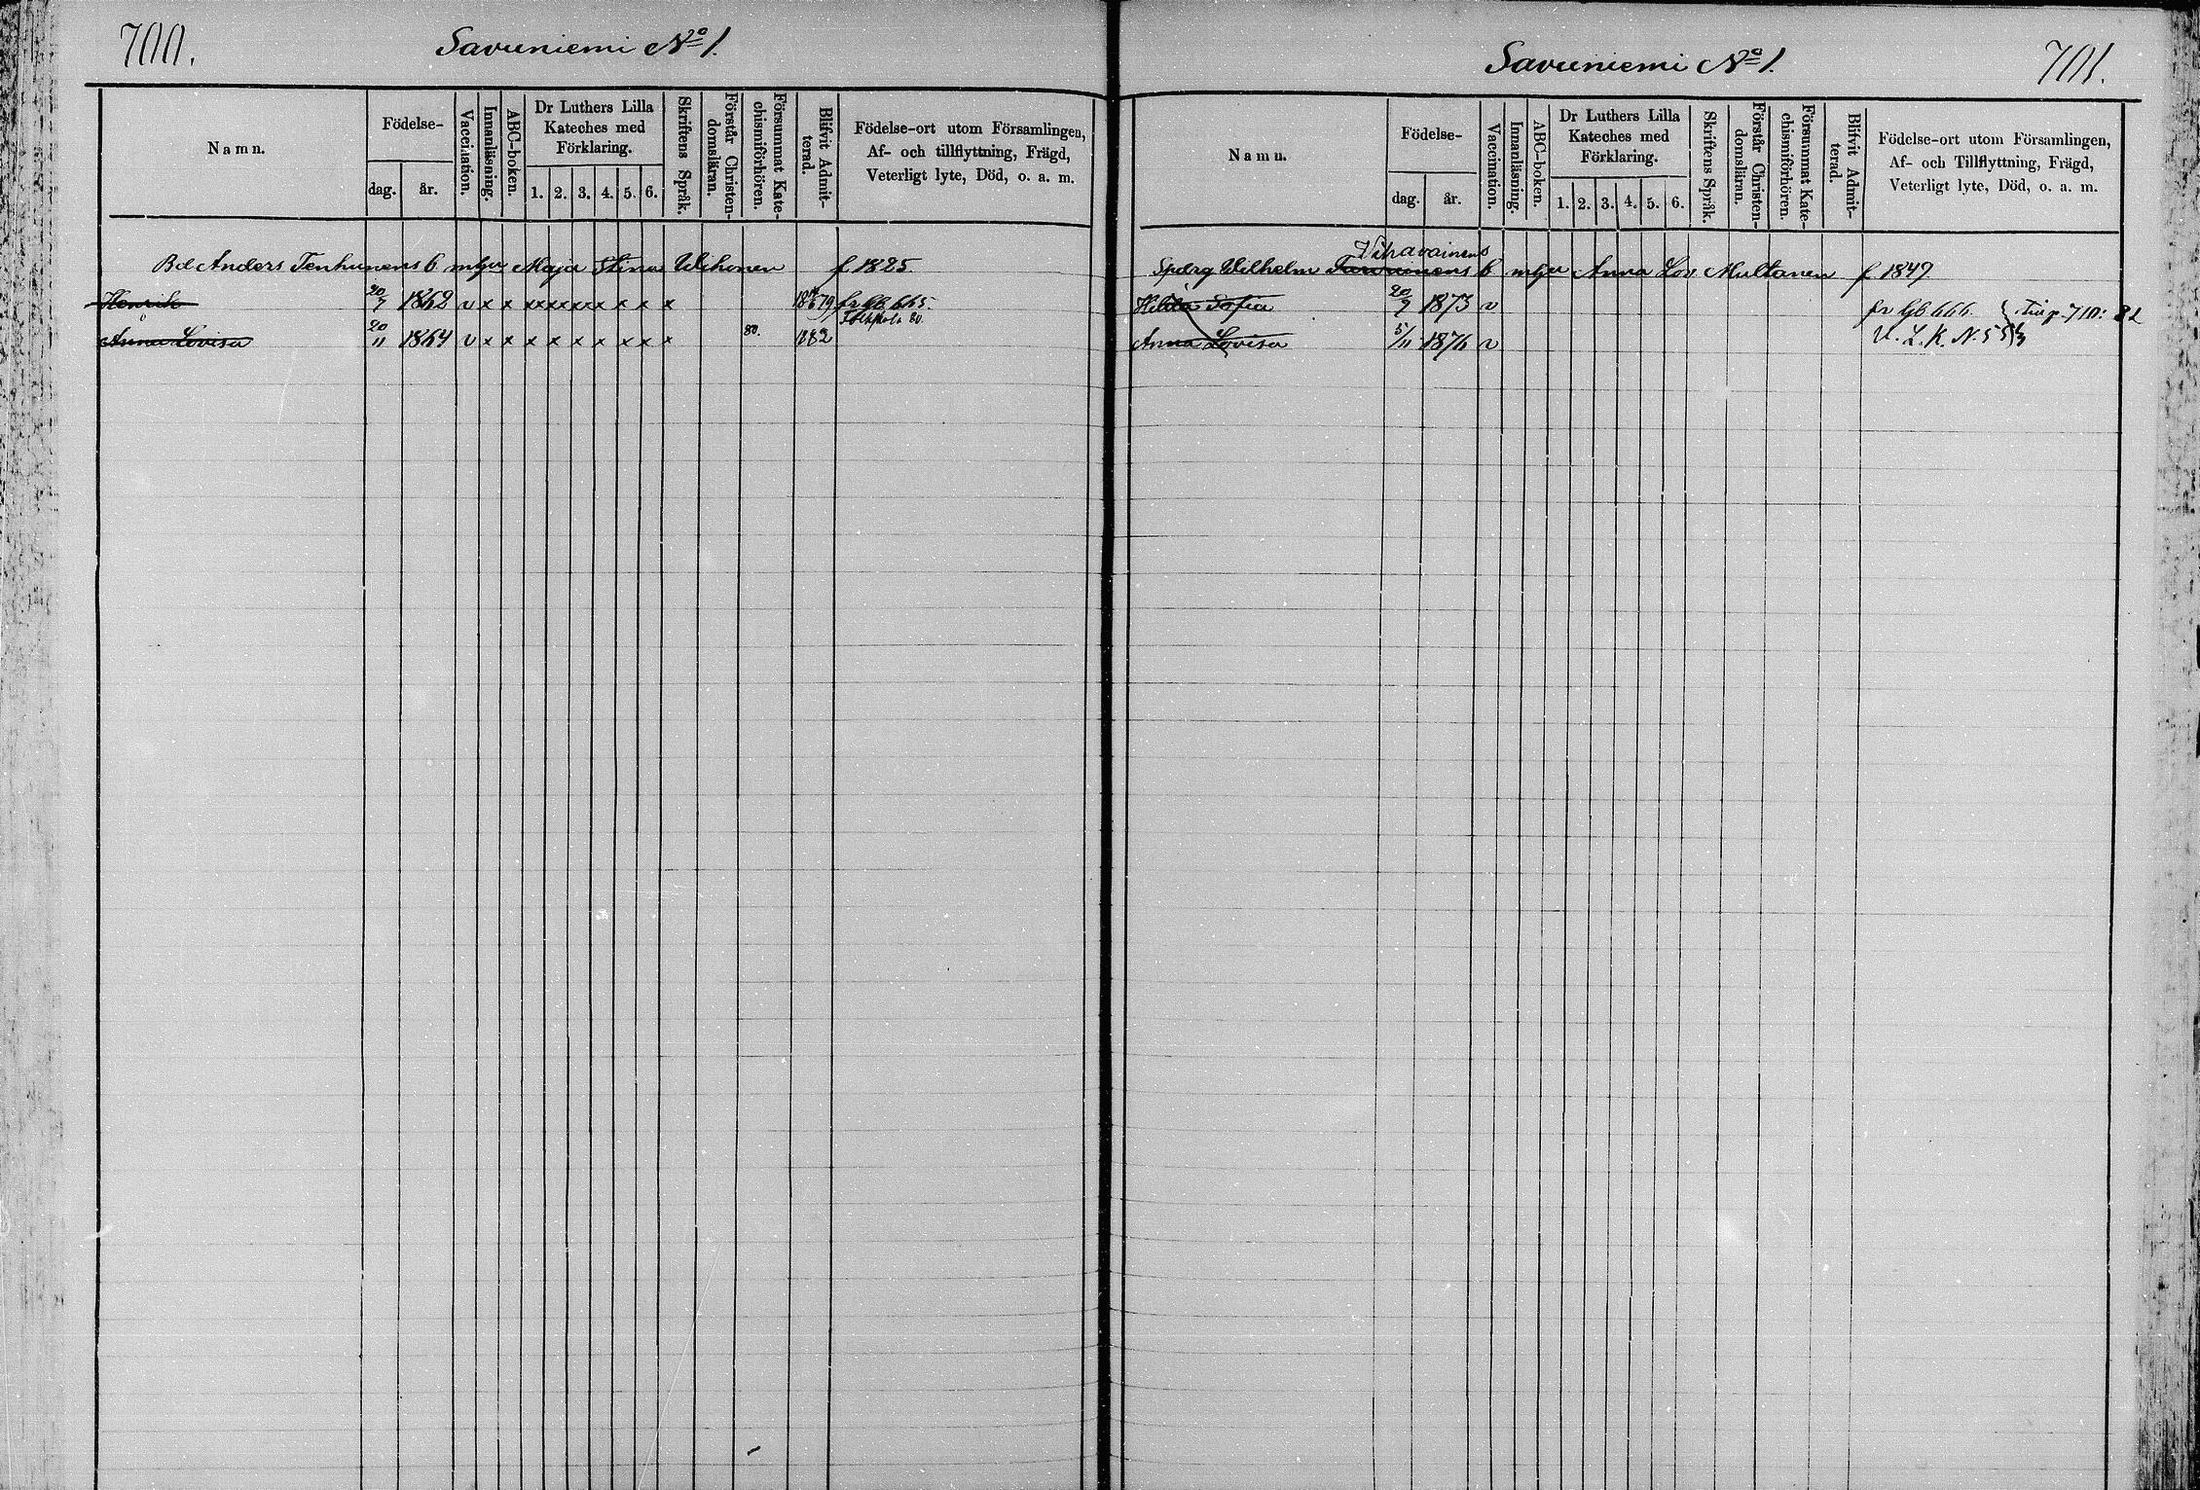 700.
Savuniemi No 1.
Namn.
Födelse-
dag.
år.
Vaccination.
Innanläsning.
ABC-boken.
Dr Luthers Lilla
Kateches med
Förklaring.
1. 2. 3. 4. 5. 6.
Skriftens Språk.
Förstår Christen-
domsläran.
Försummat Kate-
chismiförhören.
Blifvit Admit-
terad.
Födelse-ort utom Församlingen,
Af- och tillflyttning, Frägd,
Veterligt lyte, Död, o. a. m.
Bd Anders Tenhunens b mhu Maja Stina Wihonen f 1825
Henrik 20/7 1862 v x x x x x x x x x x x x 1879 fr lb 665.
Folkskola 80.
Anna Lovisa 20/11 1864 v x x x x x x x x x 80. 1882
Savuniemi No 1.
701.
Namn.
Födelse-
dag.
år.
Vaccination.
Innanläsning.
ABC-boken.
Dr Luthers Lilla
Kateches med
Förklaring.
1. 2. 3. 4. 5. 6.
Skriftens Språk.
Förstår Christen-
domsläran.
Försummat Kate-
chismiförhören.
Blifvit Admit-
terad.
Födelse-ort utom Församlingen,
Af- och Tillflyttning, Frägd,
Veterligt lyte, Död, o. a. m.
Vihavainens
Wilhelm b mhu Anna Lov. Multanen f 1849
Hilda Sofia 20/9 1873 v fr lb 666. p. 710: 82
Anna Lovisa 5/11 1876 v U. L. K. N. 55